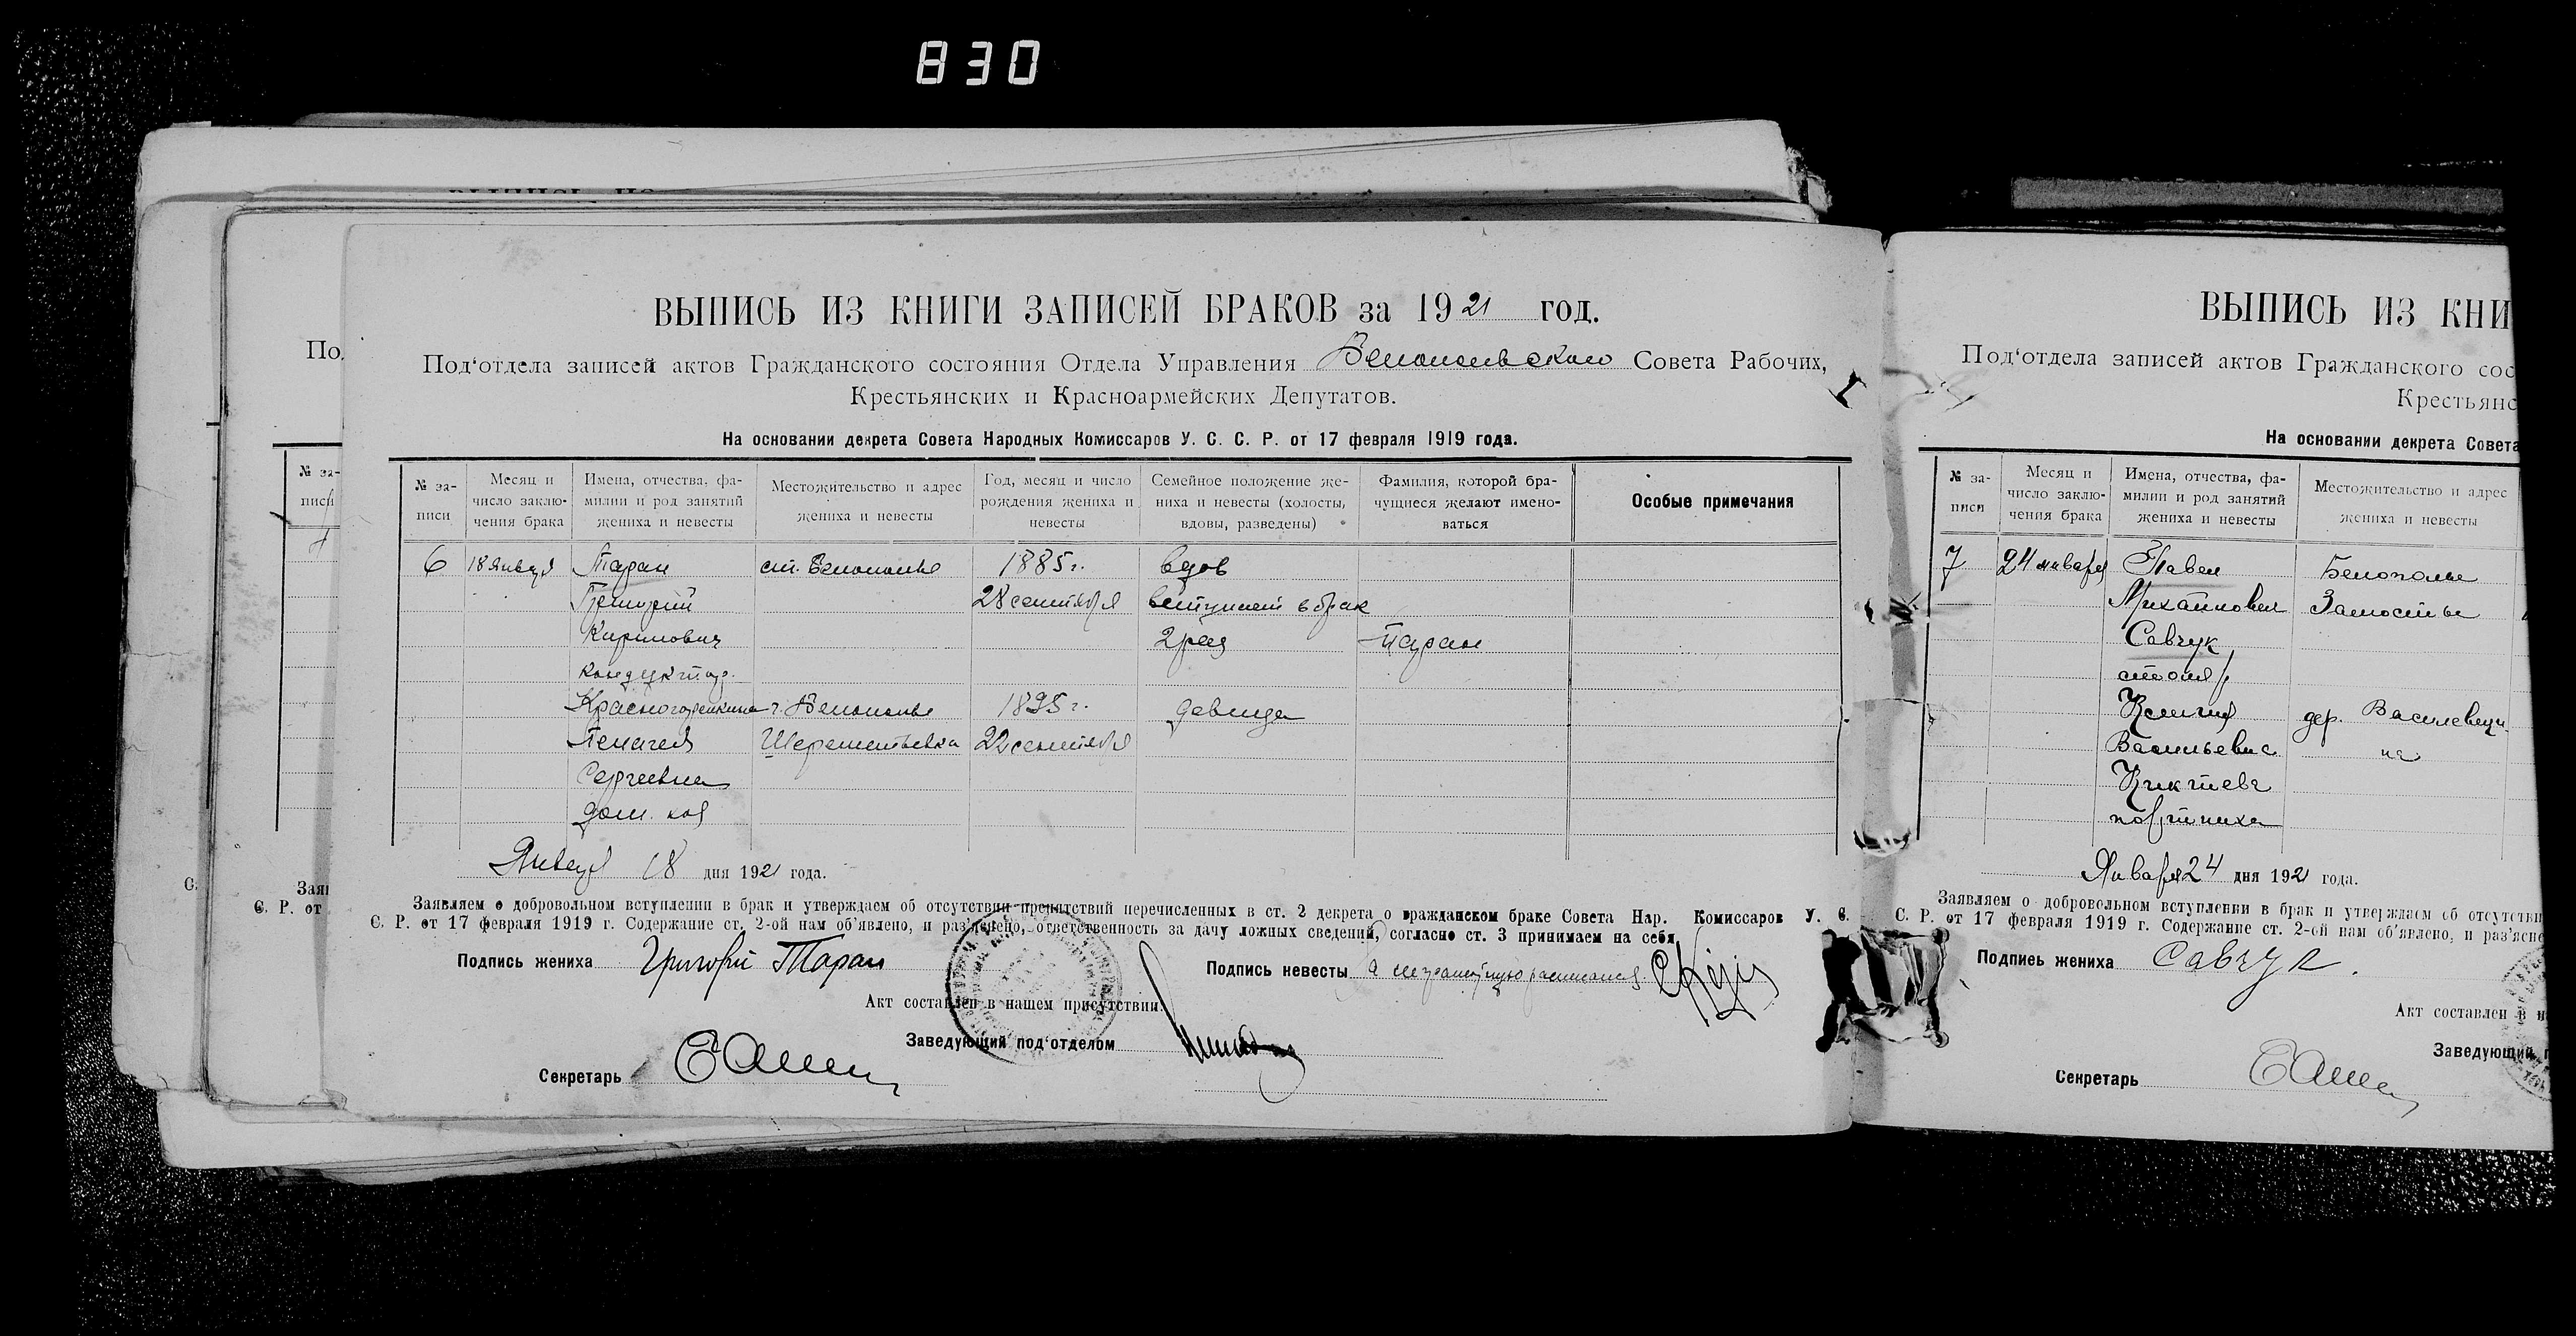 830
ВЫПИСЬ ИЗ КНИГИ ЗАПИСЕЙ БРАКОВ за 1921 год.
Под‘отдела записей актов Гражданского состояния Отдела Управления Белопольского Совета Рабочих,
Крестьянских и Красноармейских Депутатов.
На основании декрета Совета Народных Комиссаров У. С. С. Р. от 17 февраля 1919 года.
№ за-
писи
Месяц и
число заклю-
чения брака
Имена, отчества, фа-
милии и род занятий
жениха и невесты
Местожительство и адрес
жениха и невесты
Год, месяц и число
рождения жениха и
невесты
Семейное положение же-
ниха и невесты (холосты,
вдовы, разведены)
Фамилия, которой бра-
чущиеся желают имено-
ваться
Особые примечания
6 18 Января Таран ст. Белополье 1885 г. вдов
Григорий 28 сентября вступает в брак
Кирилович 2 раз Таран
кондуктор.
г. Белополье 1895 г. девица
Пелагея 22 сентября
Сергеевна
дом. хоз
Января 18 дня 1921 года.
Заявляем о добровольном вступлении в брак и утверждаем об отсутствии препятствий перечисленных в ст. 2 декрета о гражданском браке Совета Нар. Комиссаров У. С.
С. Р. от 17 февраля 1919 г. Содержание ст. 2-ой нам об‘явлено, и раз‘яснено, ответственность за дачу ложных сведений, согласно ст. 3 принимаем на себя
Подпись жениха Григорій Таран
Подпись невесты а неграмотную расписался
Акт составлен в нашем присутствии.
Заведующий под‘отделом
Секретарь
ВЫПИСЬ ИЗ КНИ
Под‘отдела записей актов Гражданского сос
Крестьянс
На основании декрета Совета
№ за-
писи
Месяц и
число заклю-
чения брака
Имена, отчества, фа-
милии и род занятий
жениха и невесты
Местожительство и адрес
жениха и невесты
7 24 января Павел Белополье
Михайлович Замостье
Савчук
столяр
дер.
Васильевна
портниха
Января 24 дня 1921 года.
Заявляем о добровольном вступлении в брак и утверждаем об отсутстви
С. Р. от 17 февраля 1919 г. Содержание ст. 2-ой нам об‘явлено, и раз‘ясне
Подпись жениха Савчук.
Акт составлен в н
Заведующий п
Секретарь